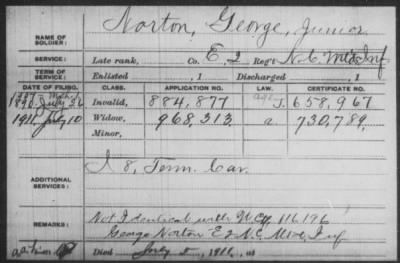 NAME OF SOLDIER: Norton, George, Junior
SERVICE: Late rank, Co. E 2 Reg't N.C. Mtd Inf
TERM OF SERVICE: Enlisted , 1 Discharged , 1
DATE OF FILING. CLASS. APPLICATION NO. LAW. CERTIFICATE NO.
1890 July 26 Invalid, 884,877 J. 658,967
1911 July 10 Widow, 968,313 a. 730,789
Minor,
ADDITIONAL SERVICES: I 8, Tenn. Cav.
REMARKS: Not Identical with 116196
George Norton E 2 N.C. Mtd, Inf
Died July 5, 1911, at